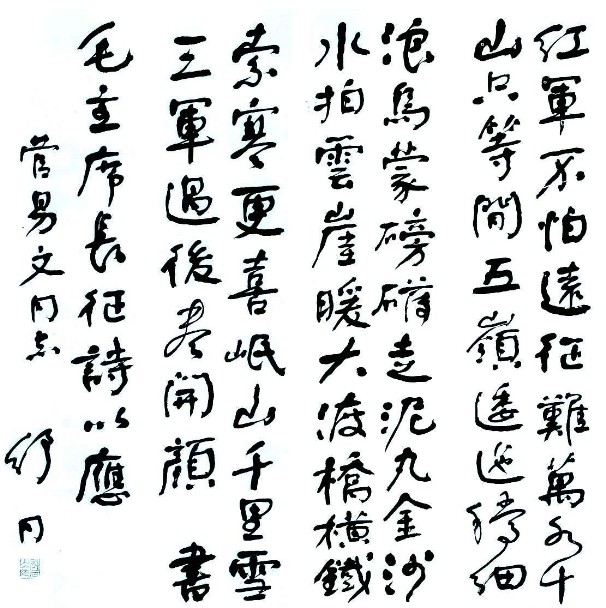 紅軍不怕遠征難萬水千
山只等閒五嶺逶迤騰細
浪烏蒙磅礴走泥丸金沙
水拍雲崖暖大渡橋橫鐵
索寒更喜岷山千里雪
三軍過後盡開顏 書
毛主席長征詩以應
管易文同志
舒同